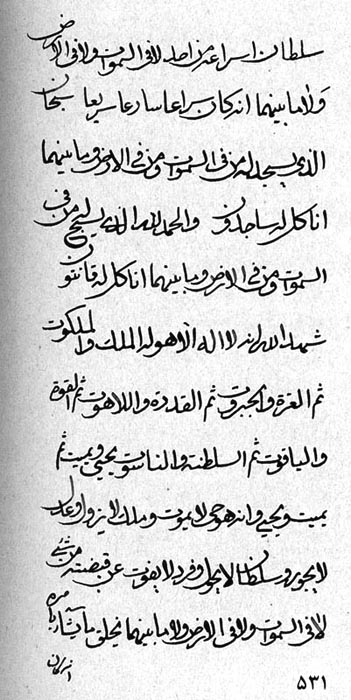 سلطان اسراعه من احد لا في السموات ولا في الارض
ولا ما بينهما انه كان سراعا سارعا سريعا سبحان
الذي يسجد له من في السموات ومن في الارض وما بينهما
انا كل له ساجدون والحمد لله الذي يسبح له من في
السموات ومن في الارض وما بينهما انا كل له قانتون
شهد الله انه لا اله الا هو له الملك والملكوت
ثم العزة والجبروت ثم القدرة واللاهوت ثم القوة
والياقوت ثم السلطنة والناسوت يحيي ويميت ثم
يميت ويحيي وانه هو حي لا يموت وملك لا يزول وعدل
لا يجور وسلطان لا يحول وفرد لا يفوت عن قبضته من شيء
لا في السموات ولا في الارض ولا ما بينهما يخلق ما يشاء بامره
انه كان
٥٣١